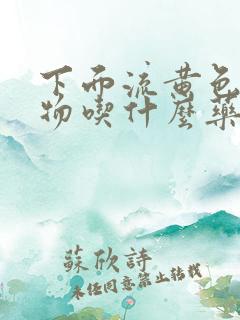 下面流黄色
物喫什麽藥
蘇欣詩
未经同意禁止转载